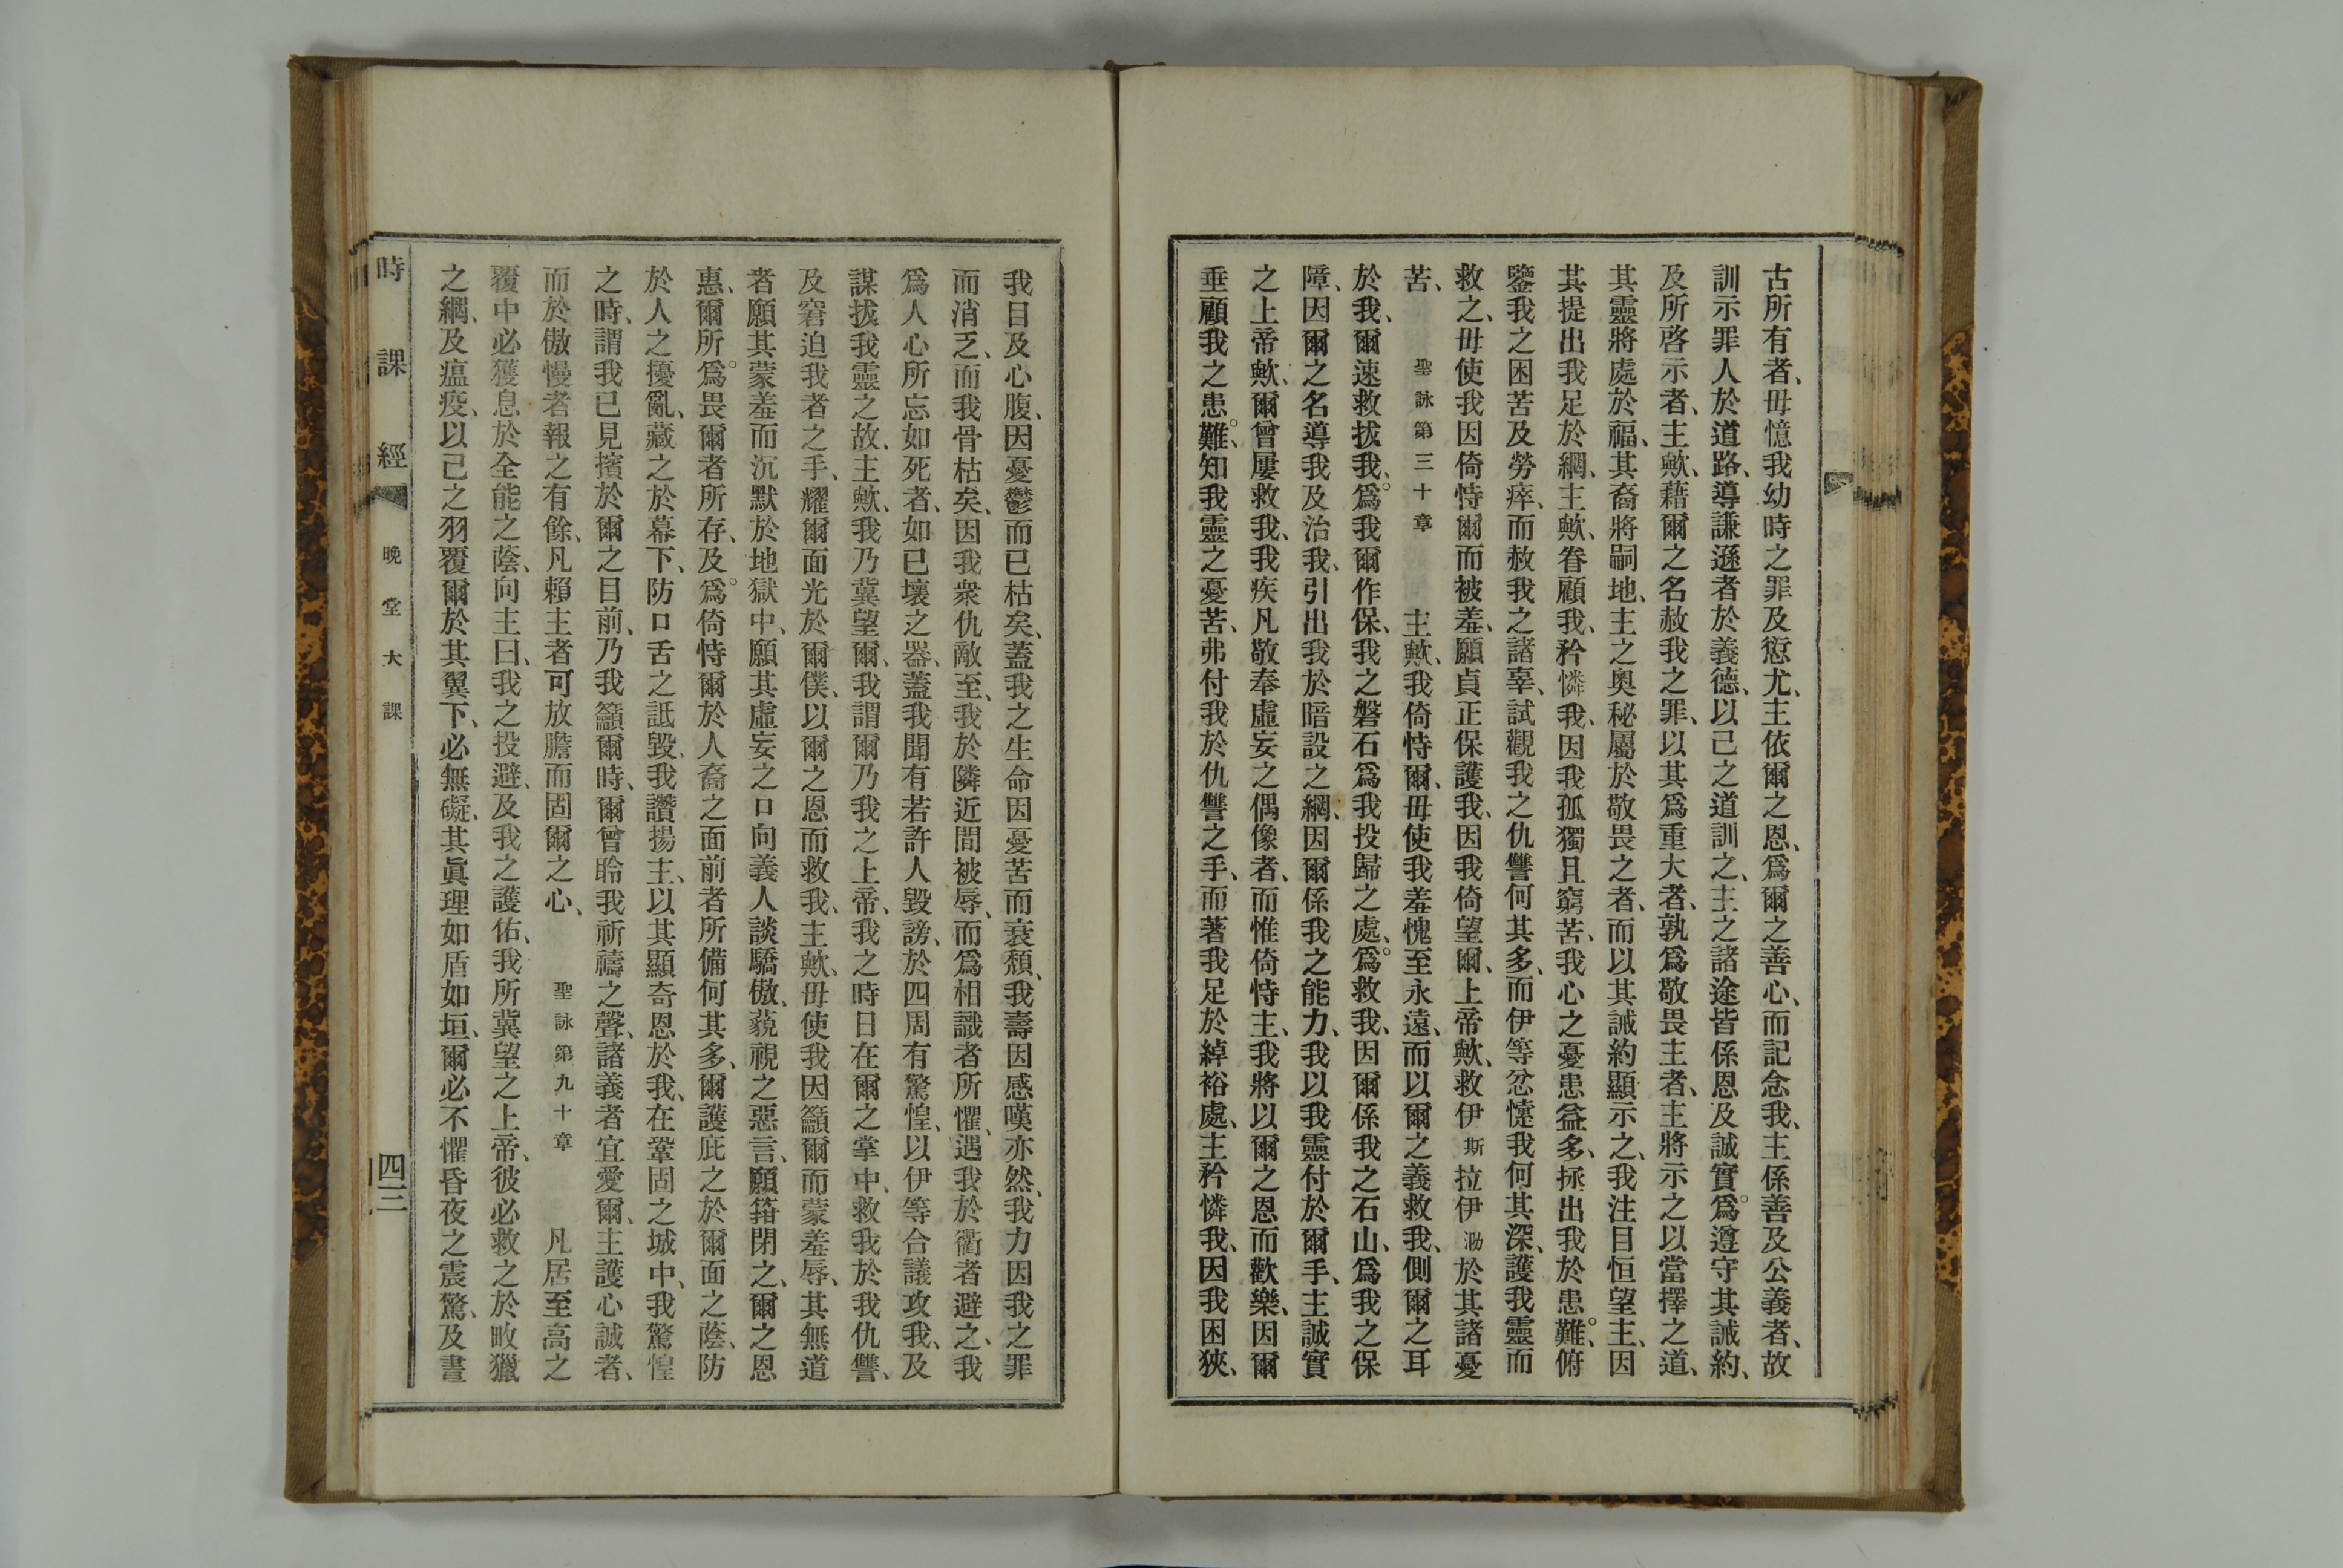 古所有者、毋憶我幼時之罪及愆尤、主依爾之恩、爲爾之善心、而記念我、主係善及公義者、故
訓示罪人於道路、導謙遜者於義德、以己之道訓之、主之諸途皆係恩及誠實、爲遵守其誡約、
及所啓示者、主歟、藉爾之名赦我之罪、以其爲重大者、孰爲敬畏主者、主將示之以當擇之道、
其靈將處於福、其裔將嗣地、主之奧秘屬於敬畏之者、而以其誡約顯示之、我注目恒望主、因
其提出我足於網、主歟、眷顧我、矜憐我、因我孤獨且窮苦、我心之憂患益多、拯出我於患難、俯
鑒我之困苦及勞瘁、而赦我之諸辜、試觀我之仇讐何其多、而伊等忿懥我何其深、護我靈而
救之、毋使我因倚恃爾而被羞、願貞正保護我、因我倚望爾、上帝歟、救伊斯拉伊泐於其諸憂
苦、 聖詠第三十章 主歟、我倚恃爾、毋使我羞愧至永遠、而以爾之義救我、側爾之耳
於我、爾速救拔我、爲我爾作保、我之磐石爲我投歸之處、爲救我、因爾係我之石山、爲我之保
障、因爾之名導我及治我、引出我於暗設之網、因爾係我之能力、我以我靈付於爾手、主誠實
之上帝歟、爾曾屢救我、我疾凡敬奉虛妄之偶像者、而惟倚恃主、我將以爾之恩而歡樂、因爾
垂顧我之患難、知我靈之憂苦、弗付我於仇讐之手、而著我足於綽裕處、主矜憐我、因我困狹、
我目及心腹、因憂鬱而已枯矣、蓋我之生命因憂苦而衰頹、我壽因感嘆亦然、我力因我之罪
而消乏、而我骨枯矣、因我衆仇敵至、我於隣近間被辱、而爲相識者所懼、遇我於衢者避之、我
爲人心所忘如死者、如已壞之器、蓋我聞有若許人毀謗、於四周有驚惶、以伊等合議攻我、及
謀拔我靈之故、主歟、我乃冀望爾、我謂爾乃我之上帝、我之時日在爾之掌中、救我於我仇讐、
及窘迫我者之手、耀爾面光於爾僕、以爾之恩而救我、主歟、毋使我因籲爾而蒙羞辱、其無道
者願其蒙羞而沉默於地獄中、願其虛妄之口向義人談驕傲、藐視之惡言、願箝閉之、爾之恩
惠、爾所爲畏爾者所存、及爲倚恃爾於人裔之面前者所備何其多、爾護庇之於爾面之蔭、防
於人之擾亂、藏之於幕下、防口舌之詆毀、我讚揚主、以其顯奇恩於我、在鞏固之城中、我驚惶
之時、謂我已見擯於爾之目前、乃我籲爾時、爾曾聆我祈禱之聲、諸義者宜愛爾、主護心誠者、
而於傲慢者報之有餘、凡賴主者可放膽而固爾之心、 聖詠第九十章 凡居至高之
覆中必獲息於全能之蔭、向主曰、我之投避、及我之護佑、我所冀望之上帝、彼必救之於畋獵
之網、及瘟疫、以己之羽覆爾於其翼下、必無礙、其眞理如盾如垣、爾必不懼昏夜之震驚、及晝
時課經 晚堂大課 四三